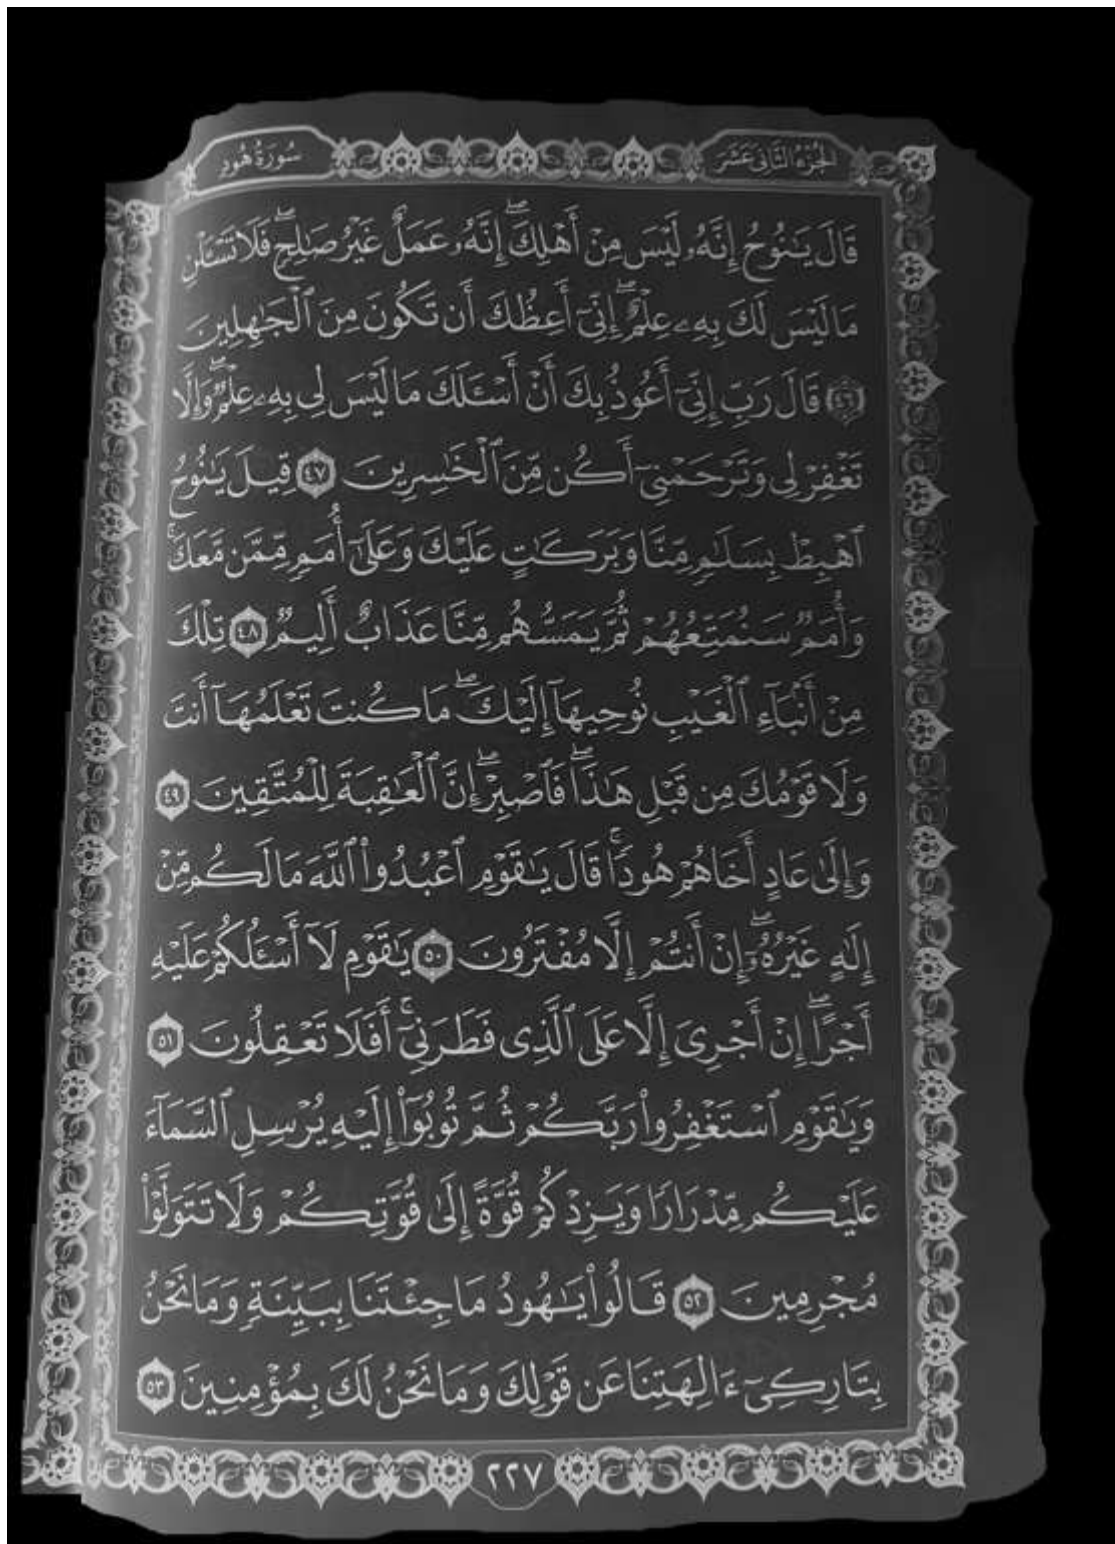 الجزء الثاني عشر
سورة هود
قَالَ يَٰنُوحُ إِنَّهُۥ لَيْسَ مِنْ أَهْلِكَۖ إِنَّهُۥ عَمَلٌ غَيْرُ صَٰلِحٖۖ فَلَا تَسْـَٔلْنِ
مَا لَيْسَ لَكَ بِهِۦ عِلْمٌۖ إِنِّيٓ أَعِظُكَ أَن تَكُونَ مِنَ ٱلْجَٰهِلِينَ
٤٦ قَالَ رَبِّ إِنِّيٓ أَعُوذُ بِكَ أَنْ أَسْـَٔلَكَ مَا لَيْسَ لِي بِهِۦ عِلْمٌۖ وَإِلَّا
تَغْفِرْ لِي وَتَرْحَمْنِيٓ أَكُن مِّنَ ٱلْخَٰسِرِينَ ٤٧ قِيلَ يَٰنُوحُ
ٱهْبِطْ بِسَلَٰمٖ مِّنَّا وَبَرَكَٰتٍ عَلَيْكَ وَعَلَىٰٓ أُمَمٖ مِّمَّن مَّعَكَۚ
وَأُمَمٞ سَنُمَتِّعُهُمْ ثُمَّ يَمَسُّهُم مِّنَّا عَذَابٌ أَلِيمٞ ٤٨ تِلْكَ
مِنْ أَنۢبَآءِ ٱلْغَيْبِ نُوحِيهَآ إِلَيْكَۖ مَا كُنتَ تَعْلَمُهَآ أَنتَ
وَلَا قَوْمُكَ مِن قَبْلِ هَٰذَاۖ فَٱصْبِرْۖ إِنَّ ٱلْعَٰقِبَةَ لِلْمُتَّقِينَ ٤٩
وَإِلَىٰ عَادٍ أَخَاهُمْ هُودٗاۚ قَالَ يَٰقَوْمِ ٱعْبُدُوا۟ ٱللَّهَ مَا لَكُم مِّنْ
إِلَٰهٍ غَيْرُهُۥٓۖ إِنْ أَنتُمْ إِلَّا مُفْتَرُونَ ٥٠ يَٰقَوْمِ لَآ أَسْـَٔلُكُمْ عَلَيْهِ
أَجْرًاۖ إِنْ أَجْرِيَ إِلَّا عَلَى ٱلَّذِي فَطَرَنِيٓۚ أَفَلَا تَعْقِلُونَ ٥١
وَيَٰقَوْمِ ٱسْتَغْفِرُوا۟ رَبَّكُمْ ثُمَّ تُوبُوٓا۟ إِلَيْهِ يُرْسِلِ ٱلسَّمَآءَ
عَلَيْكُم مِّدْرَارٗا وَيَزِدْكُمْ قُوَّةً إِلَىٰ قُوَّتِكُمْ وَلَا تَتَوَلَّوْا۟
مُجْرِمِينَ ٥٢ قَالُوا۟ يَٰهُودُ مَا جِئْتَنَا بِبَيِّنَةٖ وَمَا نَحْنُ
بِتَارِكِيٓ ءَالِهَتِنَا عَن قَوْلِكَ وَمَا نَحْنُ لَكَ بِمُؤْمِنِينَ ٥٣
٢٢٧